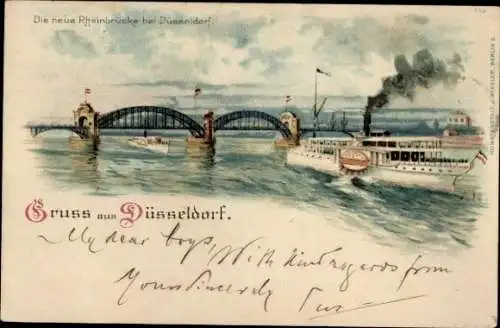 Die neue Rheinbrücke bei Düsseldorf.
Gruss aus Düsseldorf.
My dear boys, With kind regards from
Yours sincerely